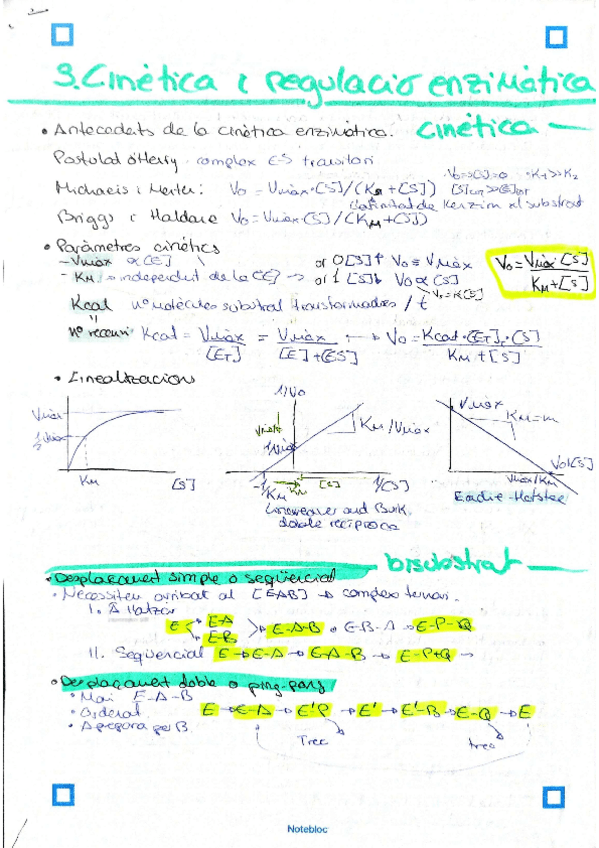 3. Cinètica i regulació enzimàtica
• Antecedents de la cinètica enzimàtica. cinètica
Postulat d'Henry. complex E-S transitori
V₀ → [S]=0 • K₁>>K₂
Michaelis i Menten: V₀ = Vmàx·[S]/(Km+[S])
afinitat de l'enzim al substrat
Briggs i Haldane V₀ = Vmàx·[S]/(KM+[S])
• Paràmetres cinètics
- Vmàx ∝[E] [S]↑ V₀ ≅ Vmàx
V₀ = Vmàx·[S] / KM+[S]
- KM independent de la [E] → [S]↓ V₀ ∝ [S]
V₀=K[S]
Kcat nº molècules substrat transformades / t
"
nº recanvi Kcat = Vmàx / [ET] = Vmàx / [E]+[ES] → V₀ = Kcat·[ET]·[S] / KM+[S]
• Linealització
1/V₀
Vmàx
KM/Vmàx
Vmàx
KM=m
KM [S]
-1/KM
1/[S]
V₀/[S]
Vmàx/KM
Lineweaver and Burk
doble recíproca
Eadie-Hofstee
bisubstrat
• Desplaçament simple o seqüencial
• Necessiten arribar al [EAB] → complex ternari.
I. A l'atzar
E E-A E-B E-A-B o E-B-A → E-P-Q
II. Seqüencial E → E-A → E-A-B → E-P+Q →
• Desplaçament doble o ping-pong
• Mai E-A-B
• Ordenat E → E-A → E'P → E' → E'-B → E-Q → E
• A per B
Trec trec
Notebloc